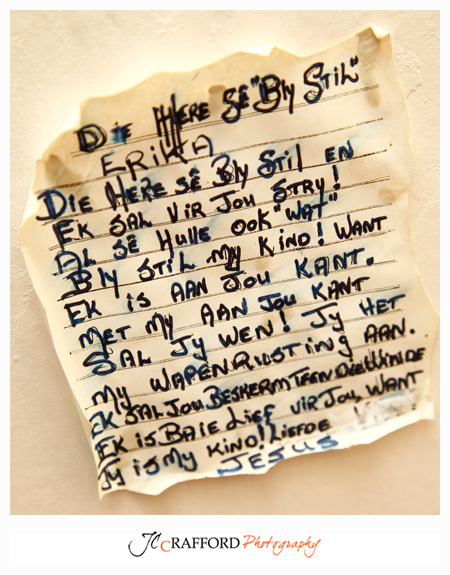 Die Here sê "Bly Stil"
Erika
Die Here sê Bly Stil en
Ek sal vir jou stry!
Al sê hulle ook "wat"
Bly stil my kind! Want
Ek is aan jou kant.
Met my aan jou kant
sal jy wen! Jy het
my wapenrusting aan.
Ek sal jou beskerm teen die winde
Ek is baie lief vir jou, want
jy is my kind! Liefde
Jesus
JC CRAFFORD Photography